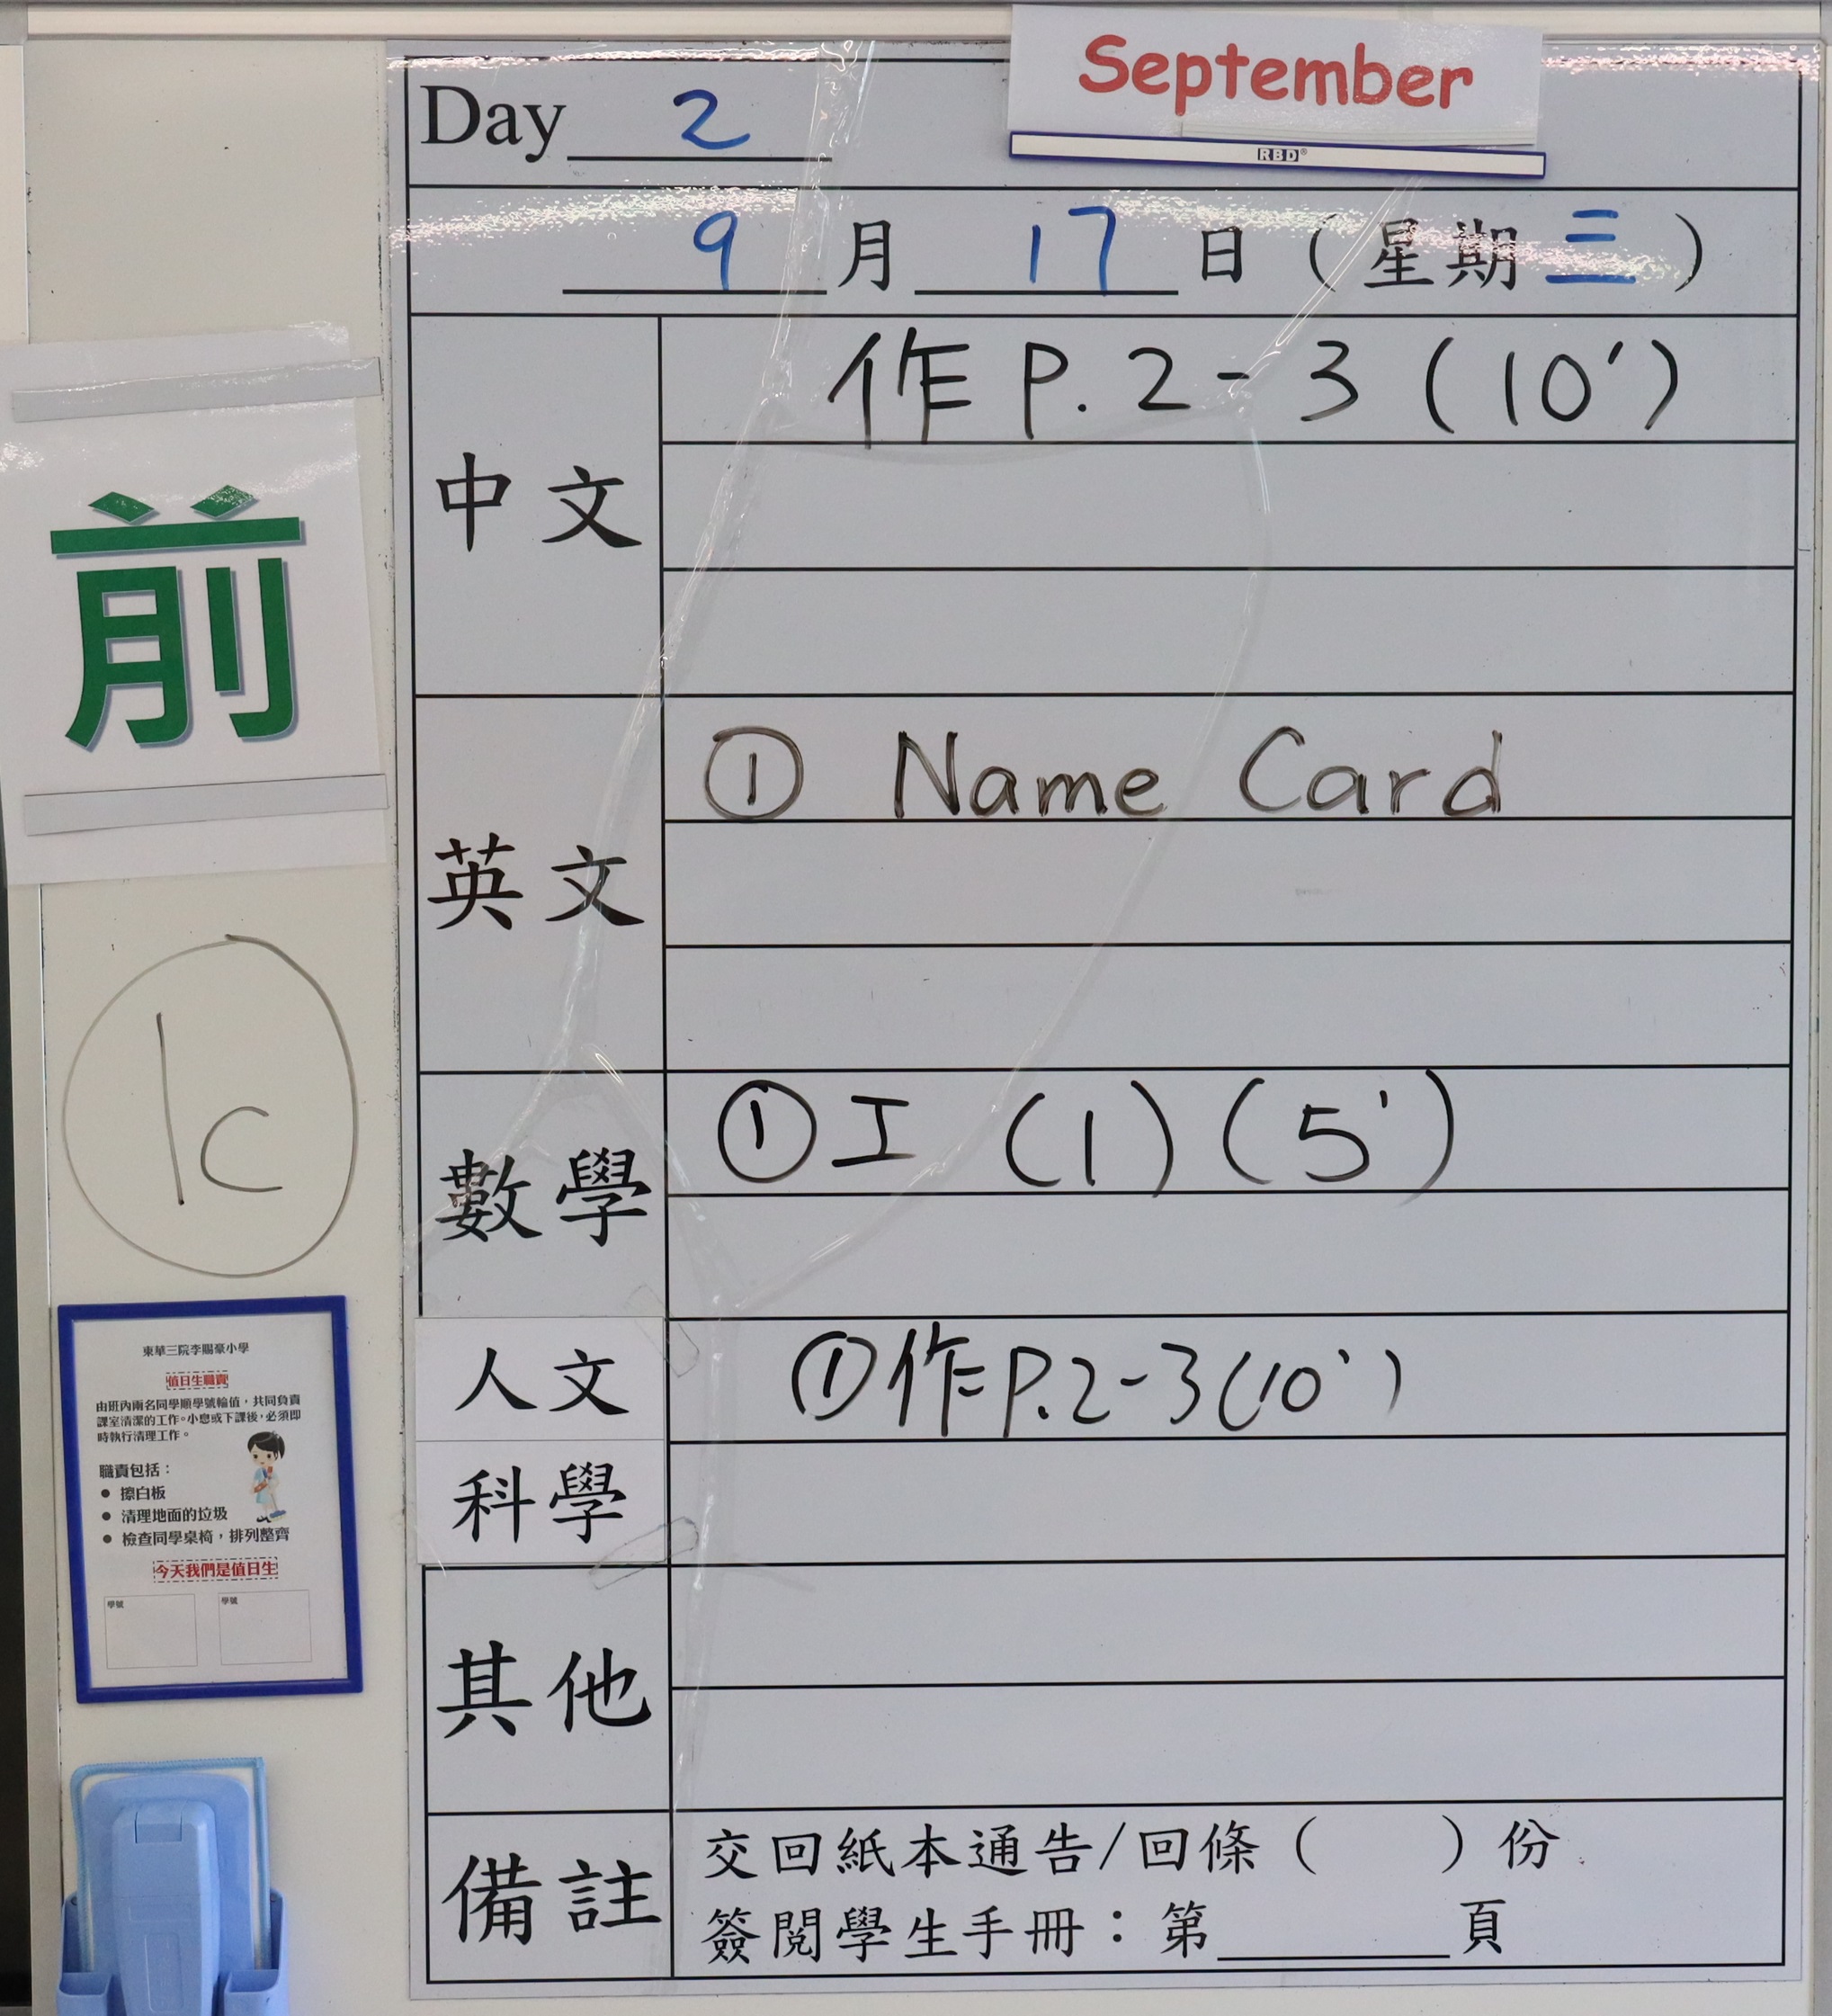 September
RBD®
Day 2
9 月 17 日 ( 星期 三 )
中文
作 P. 2 - 3 ( 10' )
英文
① Name Card
數學
① 工 (1) (5')
人文
① 作 P. 2-3 (10')
科學
其他
備註
交回紙本通告/回條 ( ) 份
簽閱學生手冊：第 頁
前
1c
東華三院李賜豪小學
值日生職責
由班內兩名同學順學號輪值，共同負責
課室清潔的工作。小息或下課後，必須即
時執行清理工作。
職責包括：
● 擦白板
● 清理地面的垃圾
● 檢查同學桌椅，排列整齊
今天我們是值日生
學號 學號